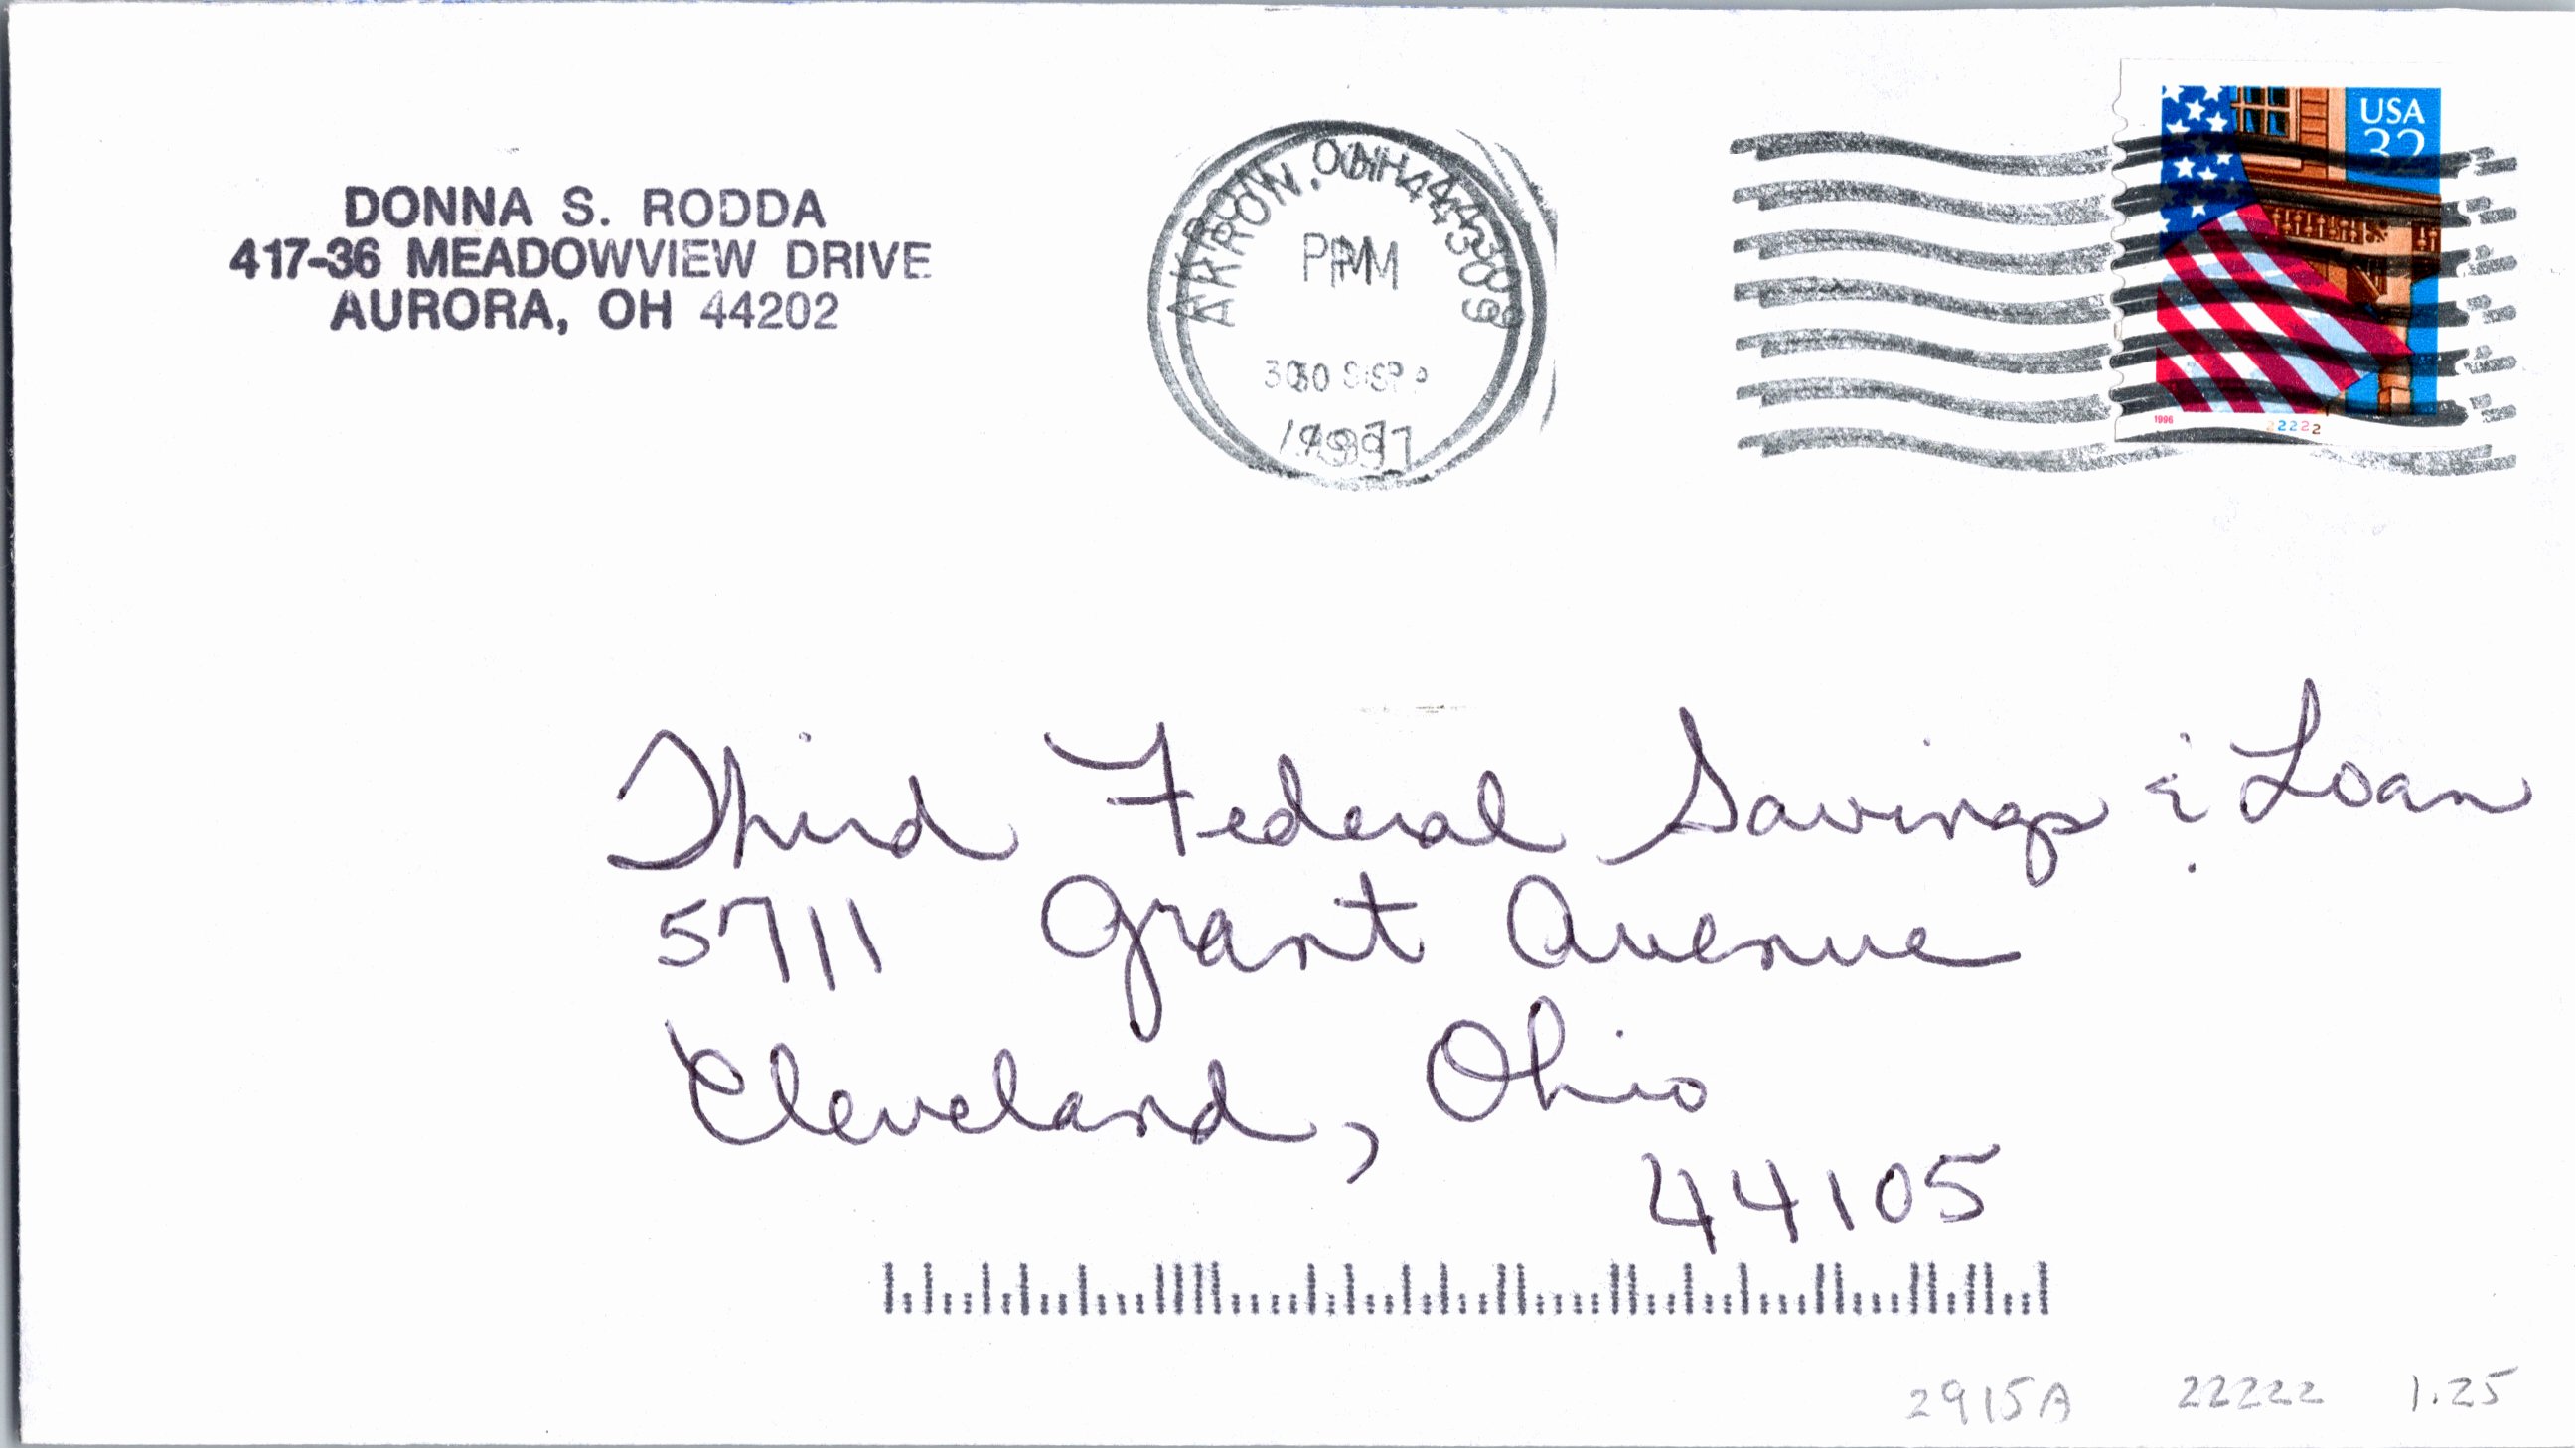 DONNA S. RODDA
417-36 MEADOWVIEW DRIVE
AURORA, OH 44202
AKRON, OH 44309
PM
30 SEP
1997
USA
32
1996
22222
Third Federal Savings & Loan
5711 Grant Avenue
Cleveland, Ohio
44105
2915A 22222 1.25